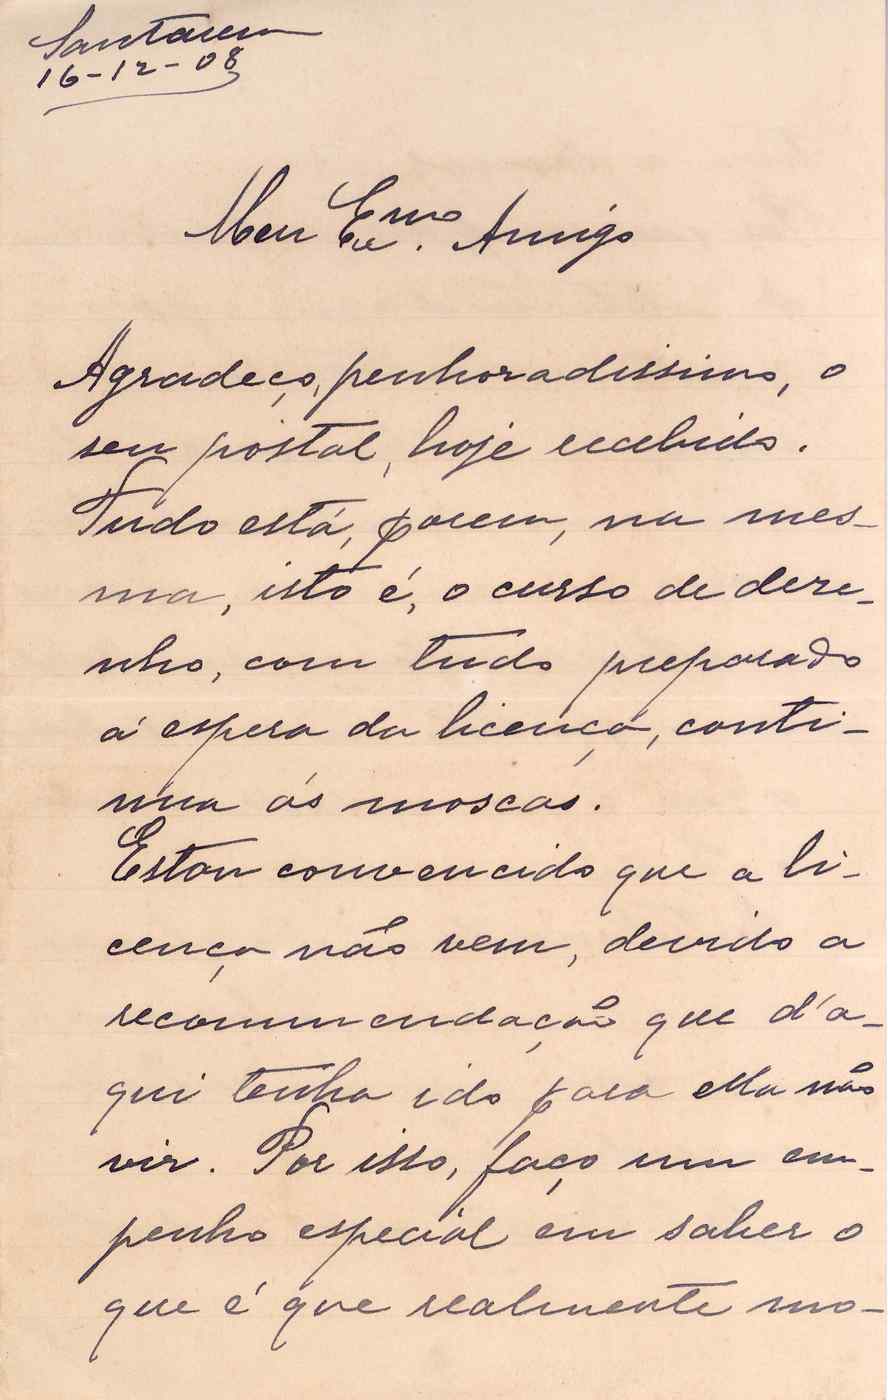 Santarem
16-12-08
Meu Exmo. Amigo
Agradeço, penhoradissimo, o
seu postal, hoje recebido.
Tudo está, porem, na mes-
ma, isto é, o curso de dese-
nho, com tudo preparado
á espera da licença, conti-
nua ás moscas.
Estou convencido que a li-
cença não vem, devido a
recommendação que d'a-
qui tenha ido para ella não
vir. Por isso, faço um em-
penho especial em saber o
que é que realmente mo-